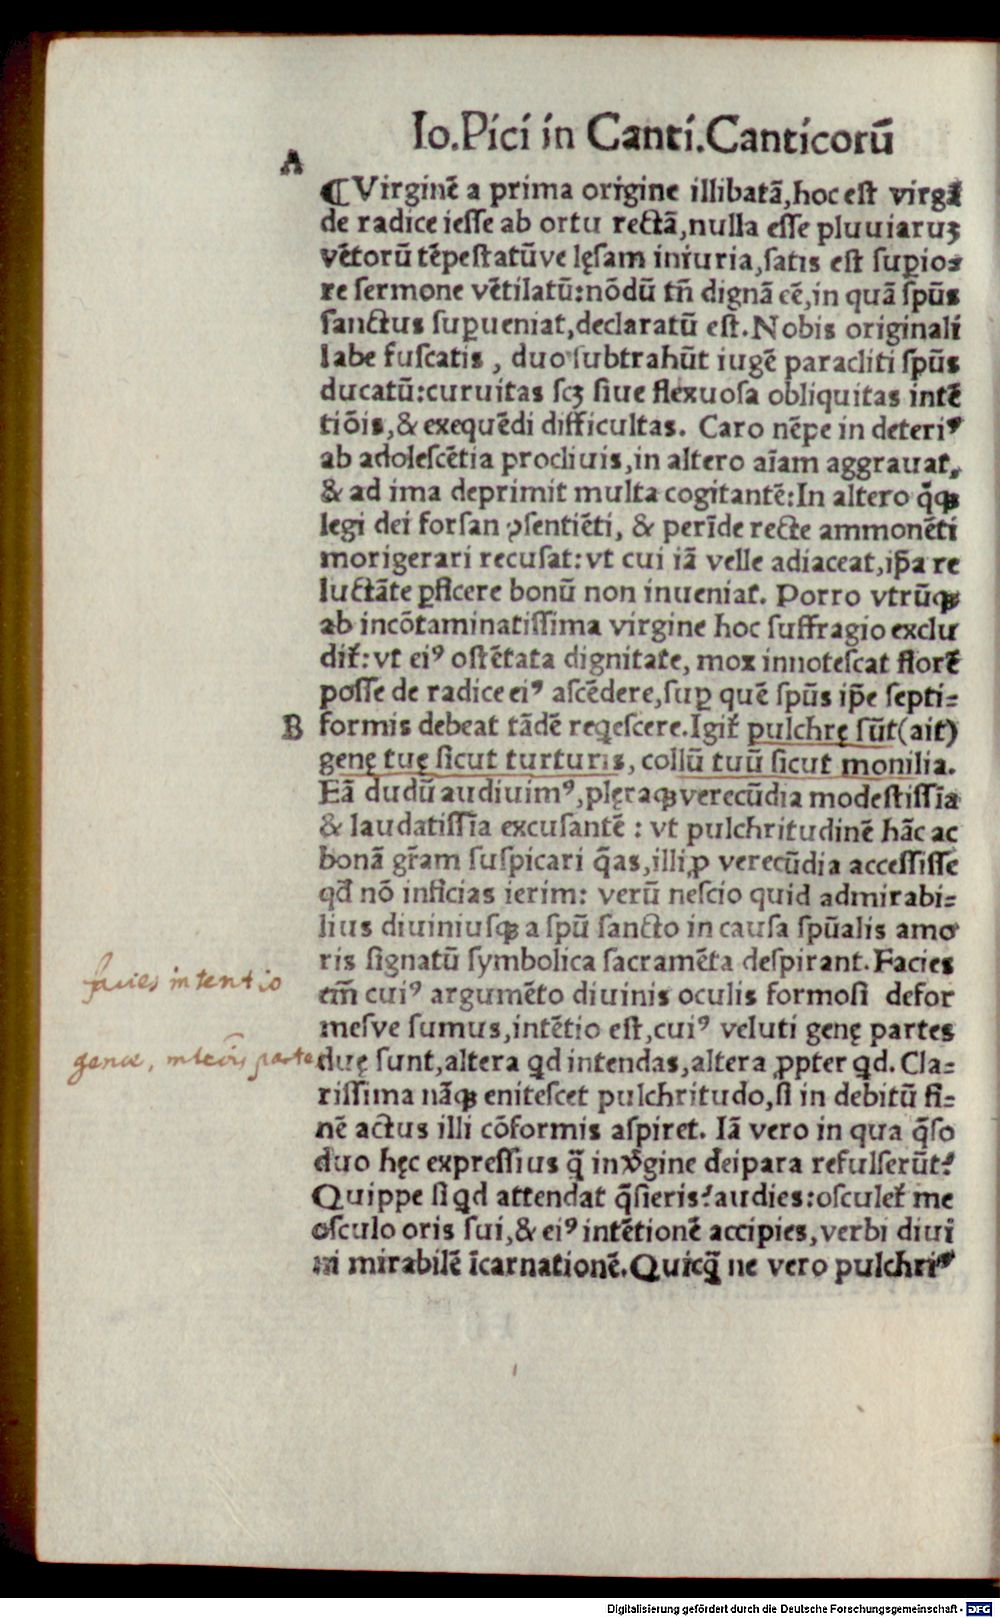 Io.Pici in Canti.Canticorū
A
¶Virginē a prima origine illibatā,hoc est virgā
de radice iesse ab ortu rectā,nulla esse pluuiaruꝫ
vētorū tēpestatūve lęsam iniuria,satis est supio-
re sermone vētilatū:nōdū tñ dignā eē,in quā spūs
sanctus supueniat,declaratū est.Nobis originali
labe fuscatis , duo subtrahūt iugē paracliti spūs
ducatū:curuitas scꝫ siue flexuosa obliquitas intē
tiōis,& exequēdi difficultas. Caro nēpe in deteriꝰ
ab adolescētia procliuis,in altero aīam aggrauat,
& ad ima deprimit multa cogitantē:In altero q̄qꝫ
legi dei forsan ꝯsentiēti, & perīde recte ammonēti
morigerari recusat:vt cui iā velle adiaceat,ip̄a re
luctāte ꝑficere bonū non inueniat. Porro vtrūqꝫ
ab incōtaminatissima virgine hoc suffragio exclu
dit̄:vt eiꝰ ostētata dignitate, mox innotescat florē
posse de radice eiꝰ ascēdere,suꝑ quē spūs ip̄e septi-
B formis debeat tādē reqescere.Igit̄ pulchrę sūt(ait)
genę tuę sicut turturis, collū tuū sicut monilia.
Eā dudū audiuimꝰ,plęraqꝫ verecūdia modestissīa
& laudatissīa excusantē : vt pulchritudinē hāc ac
bonā gr̄am suspicari q̄as,illi ꝓ verecūdia accessisse
qd̄ nō inficias ierim: verū nescio quid admirabi-
lius diuiniusqꝫ a spū sancto in causa spūalis amo
ris signatū symbolica sacramēta despirant.Facies
em̄ cuiꝰ argumēto diuinis oculis formosi defor
mesve sumus,intētio est,cuiꝰ veluti genę partes
duę sunt,altera qd intendas,altera ꝓpter qd. Cla-
rissima nāqꝫ enitescet pulchritudo,si in debitū fi-
nē actus illi cōformis aspiret. Iā vero in qua q̄so
duo hęc expressius q̄ in v̄gine deipara refulserūt?
Quippe si qd attendat q̄sieris?audies:osculet̄ me
osculo oris sui,& eiꝰ intētionē accipies,verbi diui
ni mirabilē īcarnationē.Quicq̄ ne vero pulchriꝰ
facies intentio
genae, intētiōis parte
Digitalisierung gefördert durch die Deutsche Forschungsgemeinschaft - DFG